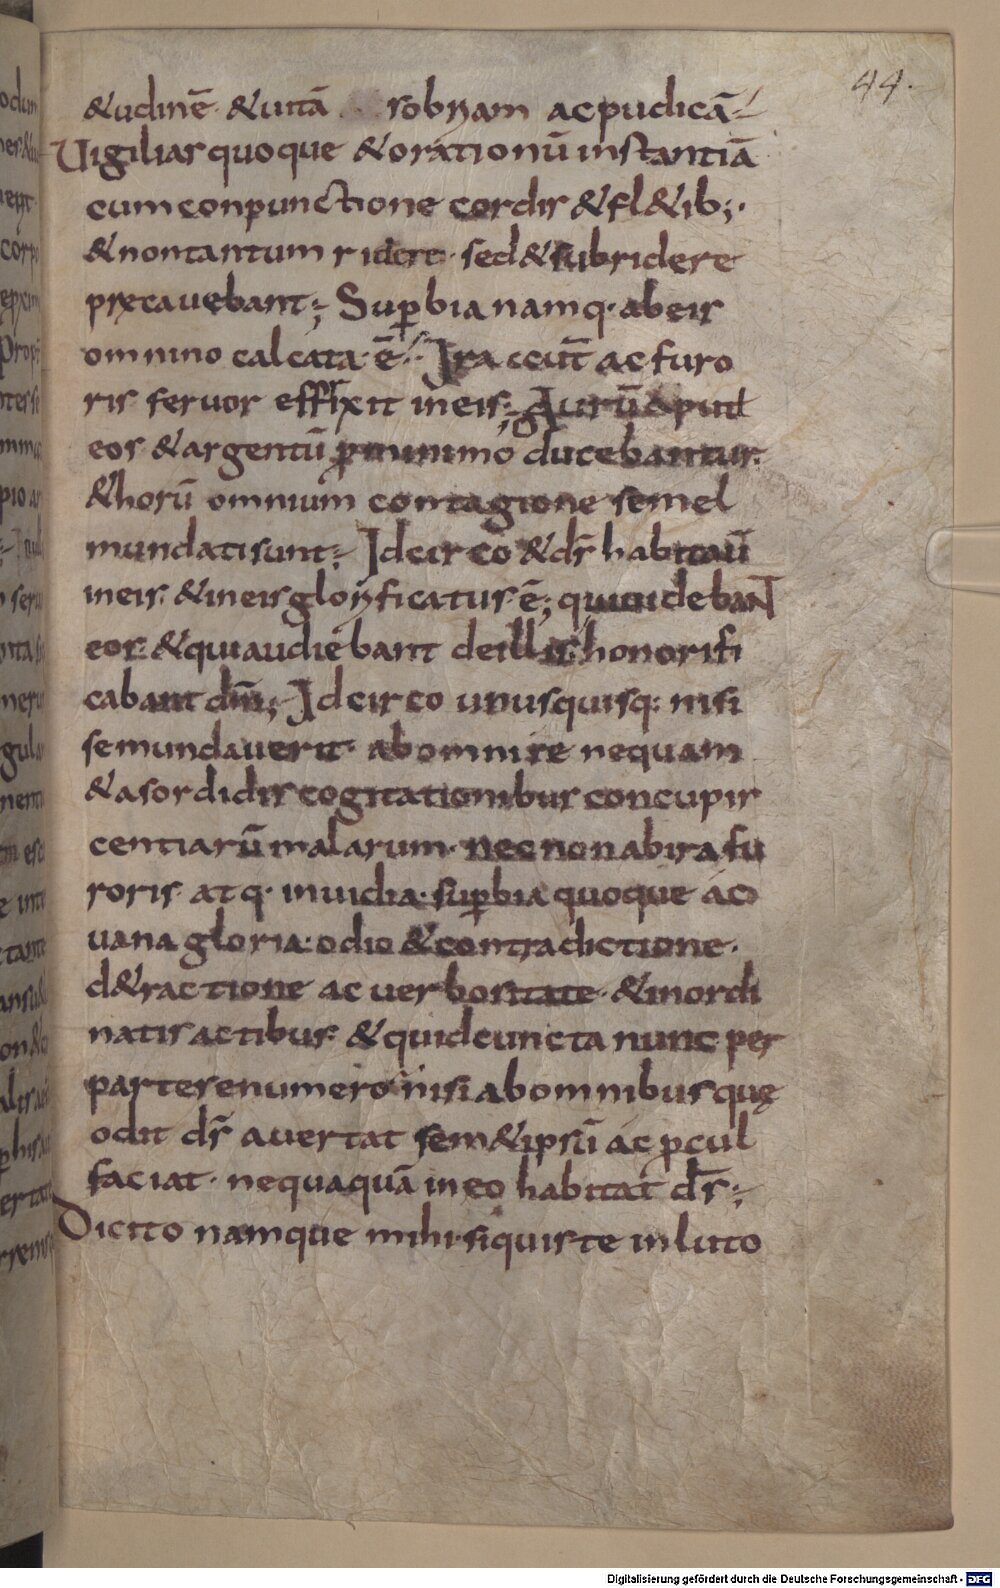 44.
&udinē· &uitā sobriam acpudicā·
Uigiliasquoque &orationū instantiā
cumconpunctione cordis &fl&ib;·
&nontantum ridere· sed&subridere
precauebant; Supbia namq· abeis
omnino calcata· ē· Ira ac furo
ris feruor effrixit ineis; Aurū aput
eos &argentū pminimo ducebantur·
&horū omnium contagione semel
mundatisunt; Idcirco &ds̄ habitaū
ineis· &ineisglorificatus·ē; quiuidebaNT
eos· &quiaudiebant deillis·honorifi
cabant dn̄m; Idcirco unusquisq: nisi
semundauerit· abomnire nequam
&asordidis cogitationibus concupis
centiarū malarum· necnonabira fu
roris· atq· inuidia· supbia quoque ac
uana gloria: odio &contradictione·
d&ractione ac uerbositate· &inordi
natis actibus· &quidcuncta nunc per
partesenumero· nisi abomnibus quę
odit ds̄ auertat sem&ipsū ac pcul
faciat· nequaquā ineo habitat ds̄;
Dicito namque mihi·siquis te inluto
Digitalisierung gefördert durch die Deutsche Forschungsgemeinschaft - DFG